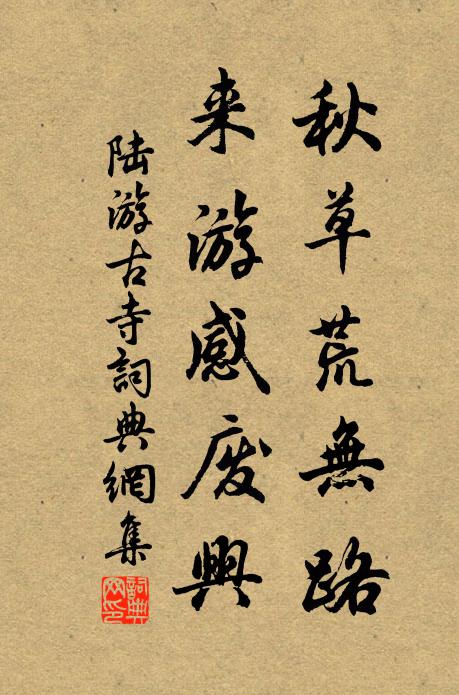 秋草荒無路
来游感废興
陆游古寺詞典網集
詞典网印